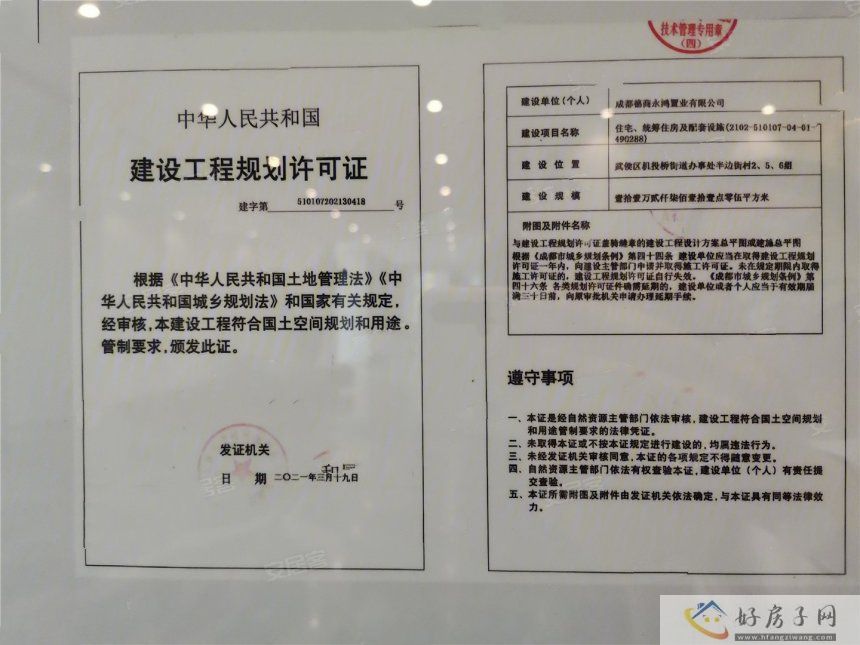 中华人民共和国
建设工程规划许可证
建字第 510107202130418 号
根据《中华人民共和国土地管理法》《中
华人民共和国城乡规划法》和国家有关规定，
经审核，本建设工程符合国土空间规划和用途
管制要求，颁发此证。
发证机关
日 期 二〇二一年三月十九日
技术管理专用章
（四）
建设单位(个人) 成都德商永鸿置业有限公司
建设项目名称 住宅、统筹住房及配套设施(2102-510107-04-01-
490288)
建设位置 武侯区机投桥街道办事处半边街村2、5、6组
建设规模 壹拾壹万贰仟柒佰壹拾壹点零伍平方米
附图及附件名称
与建设工程规划许可证盖骑缝章的建设工程设计方案总平图或建施总平图
根据《成都市城乡规划条例》第四十四条 建设单位应当在取得建设工程规划
许可证一年内，向建设主管部门申请并取得施工许可证。未在规定期限内取得
施工许可证的，建设工程规划许可证自行失效。 《成都市城乡规划条例》第
四十六条 各类规划许可证件确需延期的，建设单位或者个人应当于有效期届
满三十日前，向原审批机关申请办理延期手续。
遵守事项
一、本证是经自然资源主管部门依法审核，建设工程符合国土空间规划
和用途管制要求的法律凭证。
二、未取得本证或不按本证规定进行建设的，均属违法行为。
三、未经发证机关审核同意，本证的各项规定不得随意变更。
四、自然资源主管部门依法有权查验本证，建设单位（个人）有责任提
交查验。
五、本证所需附图及附件由发证机关依法确定，与本证具有同等法律效
力。
安居客
好房子网
www.hfangziwang.com